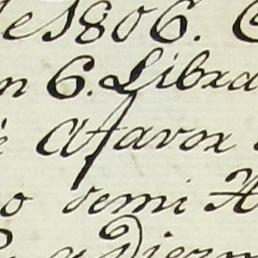 de 1806.
n 6. Libra
Afavor
o demi A